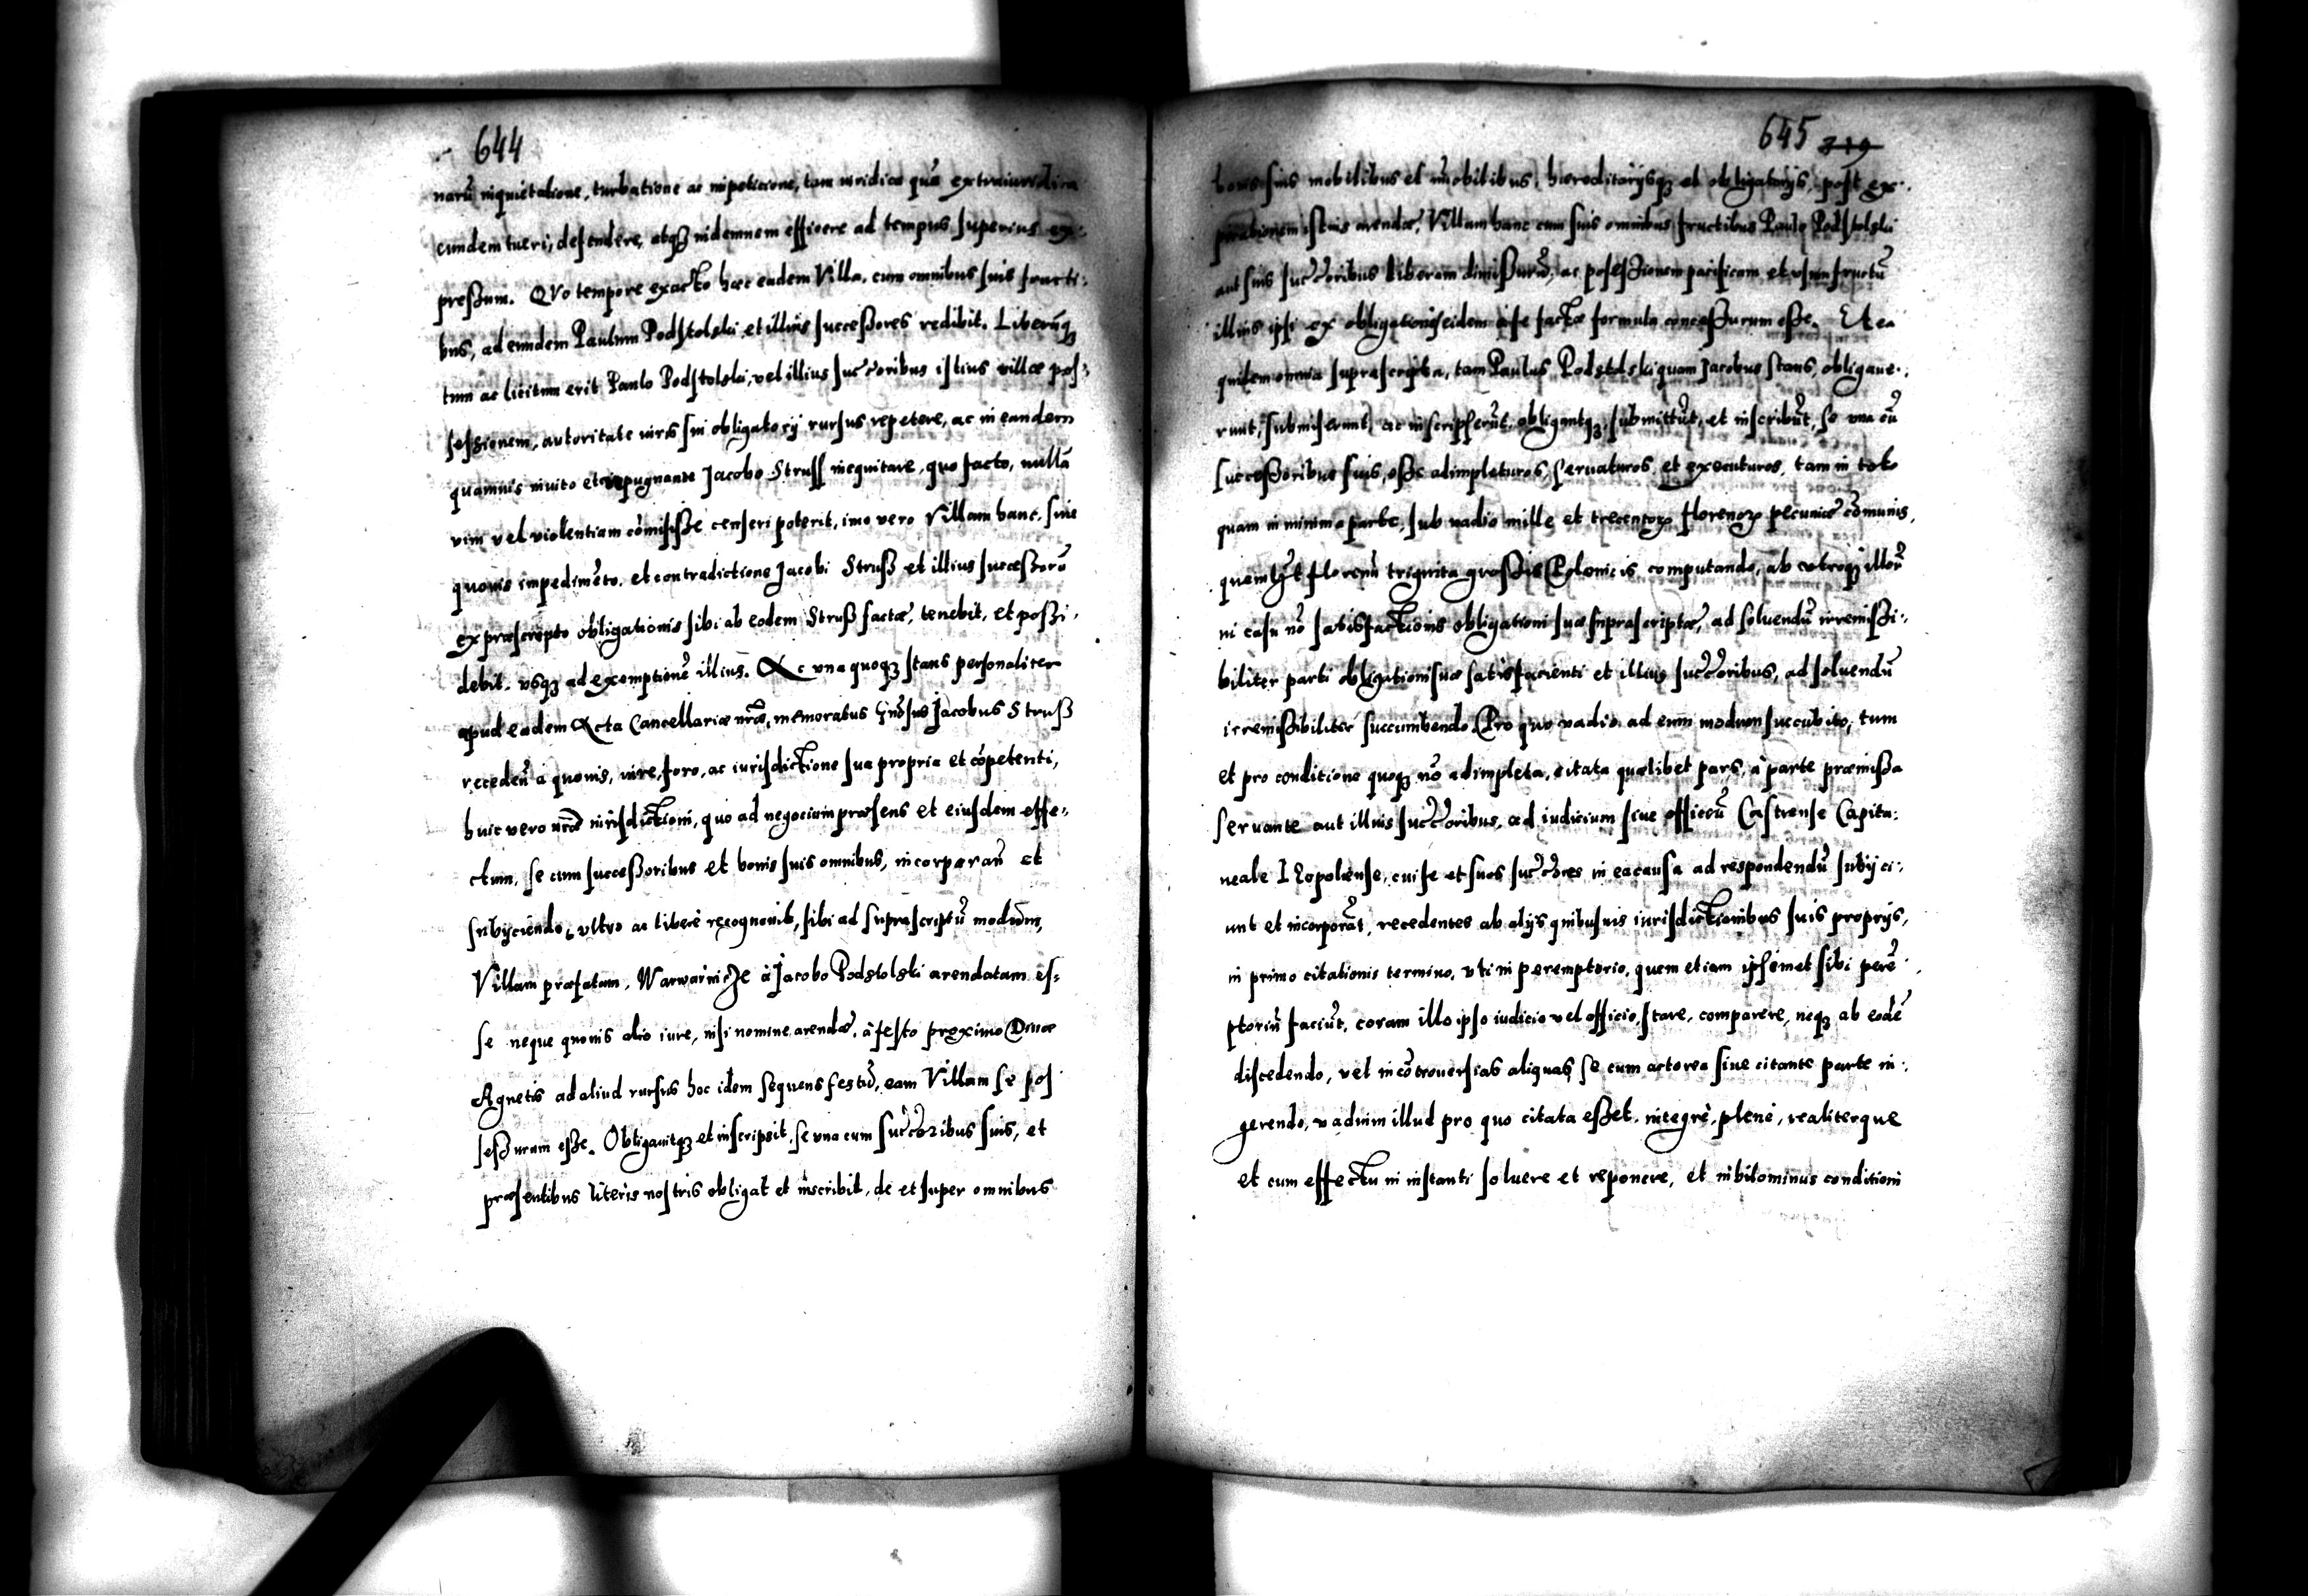 644
narũ inquietatione, turbatione ac impeticione, tam iuridica quã extraiuridica
eundem tueri, defendere, atqꝫ indemnem efficere ad tempus superius ex:
preßum. QVo tempore exacto hæc eadem Villa, cum omnibus suis fructi:
bus, ad eundem Paulum Podstolski et illius succeßores redibit. Liberũqꝫ
tum ac licitum erit Paulo Podstolski, vel illius succoribus istius villæ pos:
seßionem, autoritate iuris sui obligatorij rursus repetere, ac in eandem
quamuis inuito et repugnante Jacobo Struß inequitare, quo facto, nullã
vim vel violentiam cõmisiße censeri poterit, imo vero Villam hanc, sine
quouis impedimẽto, et contradictione Jacobi Struß et illius succeßorũ
ex præscripto obligationis sibi ab eodem Struß factæ, tenebit, et poßi:
debit, vsqꝫ ad exemptionẽ illius. Ac vna quoqꝫ stans personaliter
apud eadem Acta Cancellariæ nræ, memoratus Gnosus Jacobus Struß
recedeñ à quouis, iure, foro, ac iurisdictione sua propria et cõpetenti,
huic vero nræ iurisdictioni, quo ad negocium præsens et eiusdem effe:
ctum, se cum succeßoribus et bonis suis omnibus, incorporañ et
subijciendo, vltro ac liberè recognouit, sibi ad suprascriptũ modum,
Villam præfatam, Warwarincze à Jacobo Podstolski arendatam es:
se neque quouis alio iure, nisi nomine arendæ, à festo proximo Diuæ
Agnetis ad aliud rursus hoc idem sequens festũ, eam Villam se pos
seßurum eße. Obligauitqꝫ et inscripsit, se vna cum succoribus suis, et
præsentibus literis nostris obligat et inscribit, de et super omnibus
645 319
bonis suis mobilibus et imobilibus, hæreditarijsqꝫ et obligatorijs, post ex:
pirationem istius arendæ, Villam hanc cum suis omnibus fructibus Paulo Podstolski
aut suis succoribus liberam dimißurũ, ac poseßionem pacificam et vsumfructũ
illius ipsi ex obligationis eidem à se factæ formula conceßurum eße. Et ea
quidem omnia suprascripta, tam Paulus Podstolski quam Jacobus stans, obligaue:
runt, submiserunt, ac inscripserũt, obligantqꝫ, submittũt, et inscribũt, se vna cũ
succeßoribus suis, eße adimpleturos, seruaturos, et executuros, tam in toto
quam in minima parte, sub vadio mille et trecentorꝫ florenorꝫ pecuniæ cõmunis,
quemlʒt florenũ triginta großis Polonicis computando, ab vtroqꝫ illorũ
in casu nõ satisfactionis obligationi suæ suprascriptæ, ad soluendũ irremißi:
biliter parti obligationi suæ satisfacienti et illius succoribus, ad soluendũ
irremißibiliter succumbendo. Pro quo vadio, ad eum modum succubito, tum
et pro conditione quoqꝫ nõ adimpleta, citata quælibet pars, à parte præmißa
seruante aut illius succoribus, ad iudicium siue officiũ Castrense Capita:
neale Leopoliense, cui se et suos succores in ea causa ad respondendũ subijci:
unt et incorporãt, recedentes ab alijs quibusuis iurisdictionibus suis proprijs,
in primo citationis termino, vti in peremptorio, quem etiam ipsemet sibi perẽ
ptoriũ faciũt, coram illo ipso iudicio vel officio, stare, comparere, neqꝫ ab eodẽ
discedendo, vel in cõtrouersias aliquas se cum actorea siue citante parte in:
gerendo, vadium illud pro quo citata eßet, integrè, plenè, realiterque
et cum effectu in instanti soluere et reponere, et nihilominus conditioni